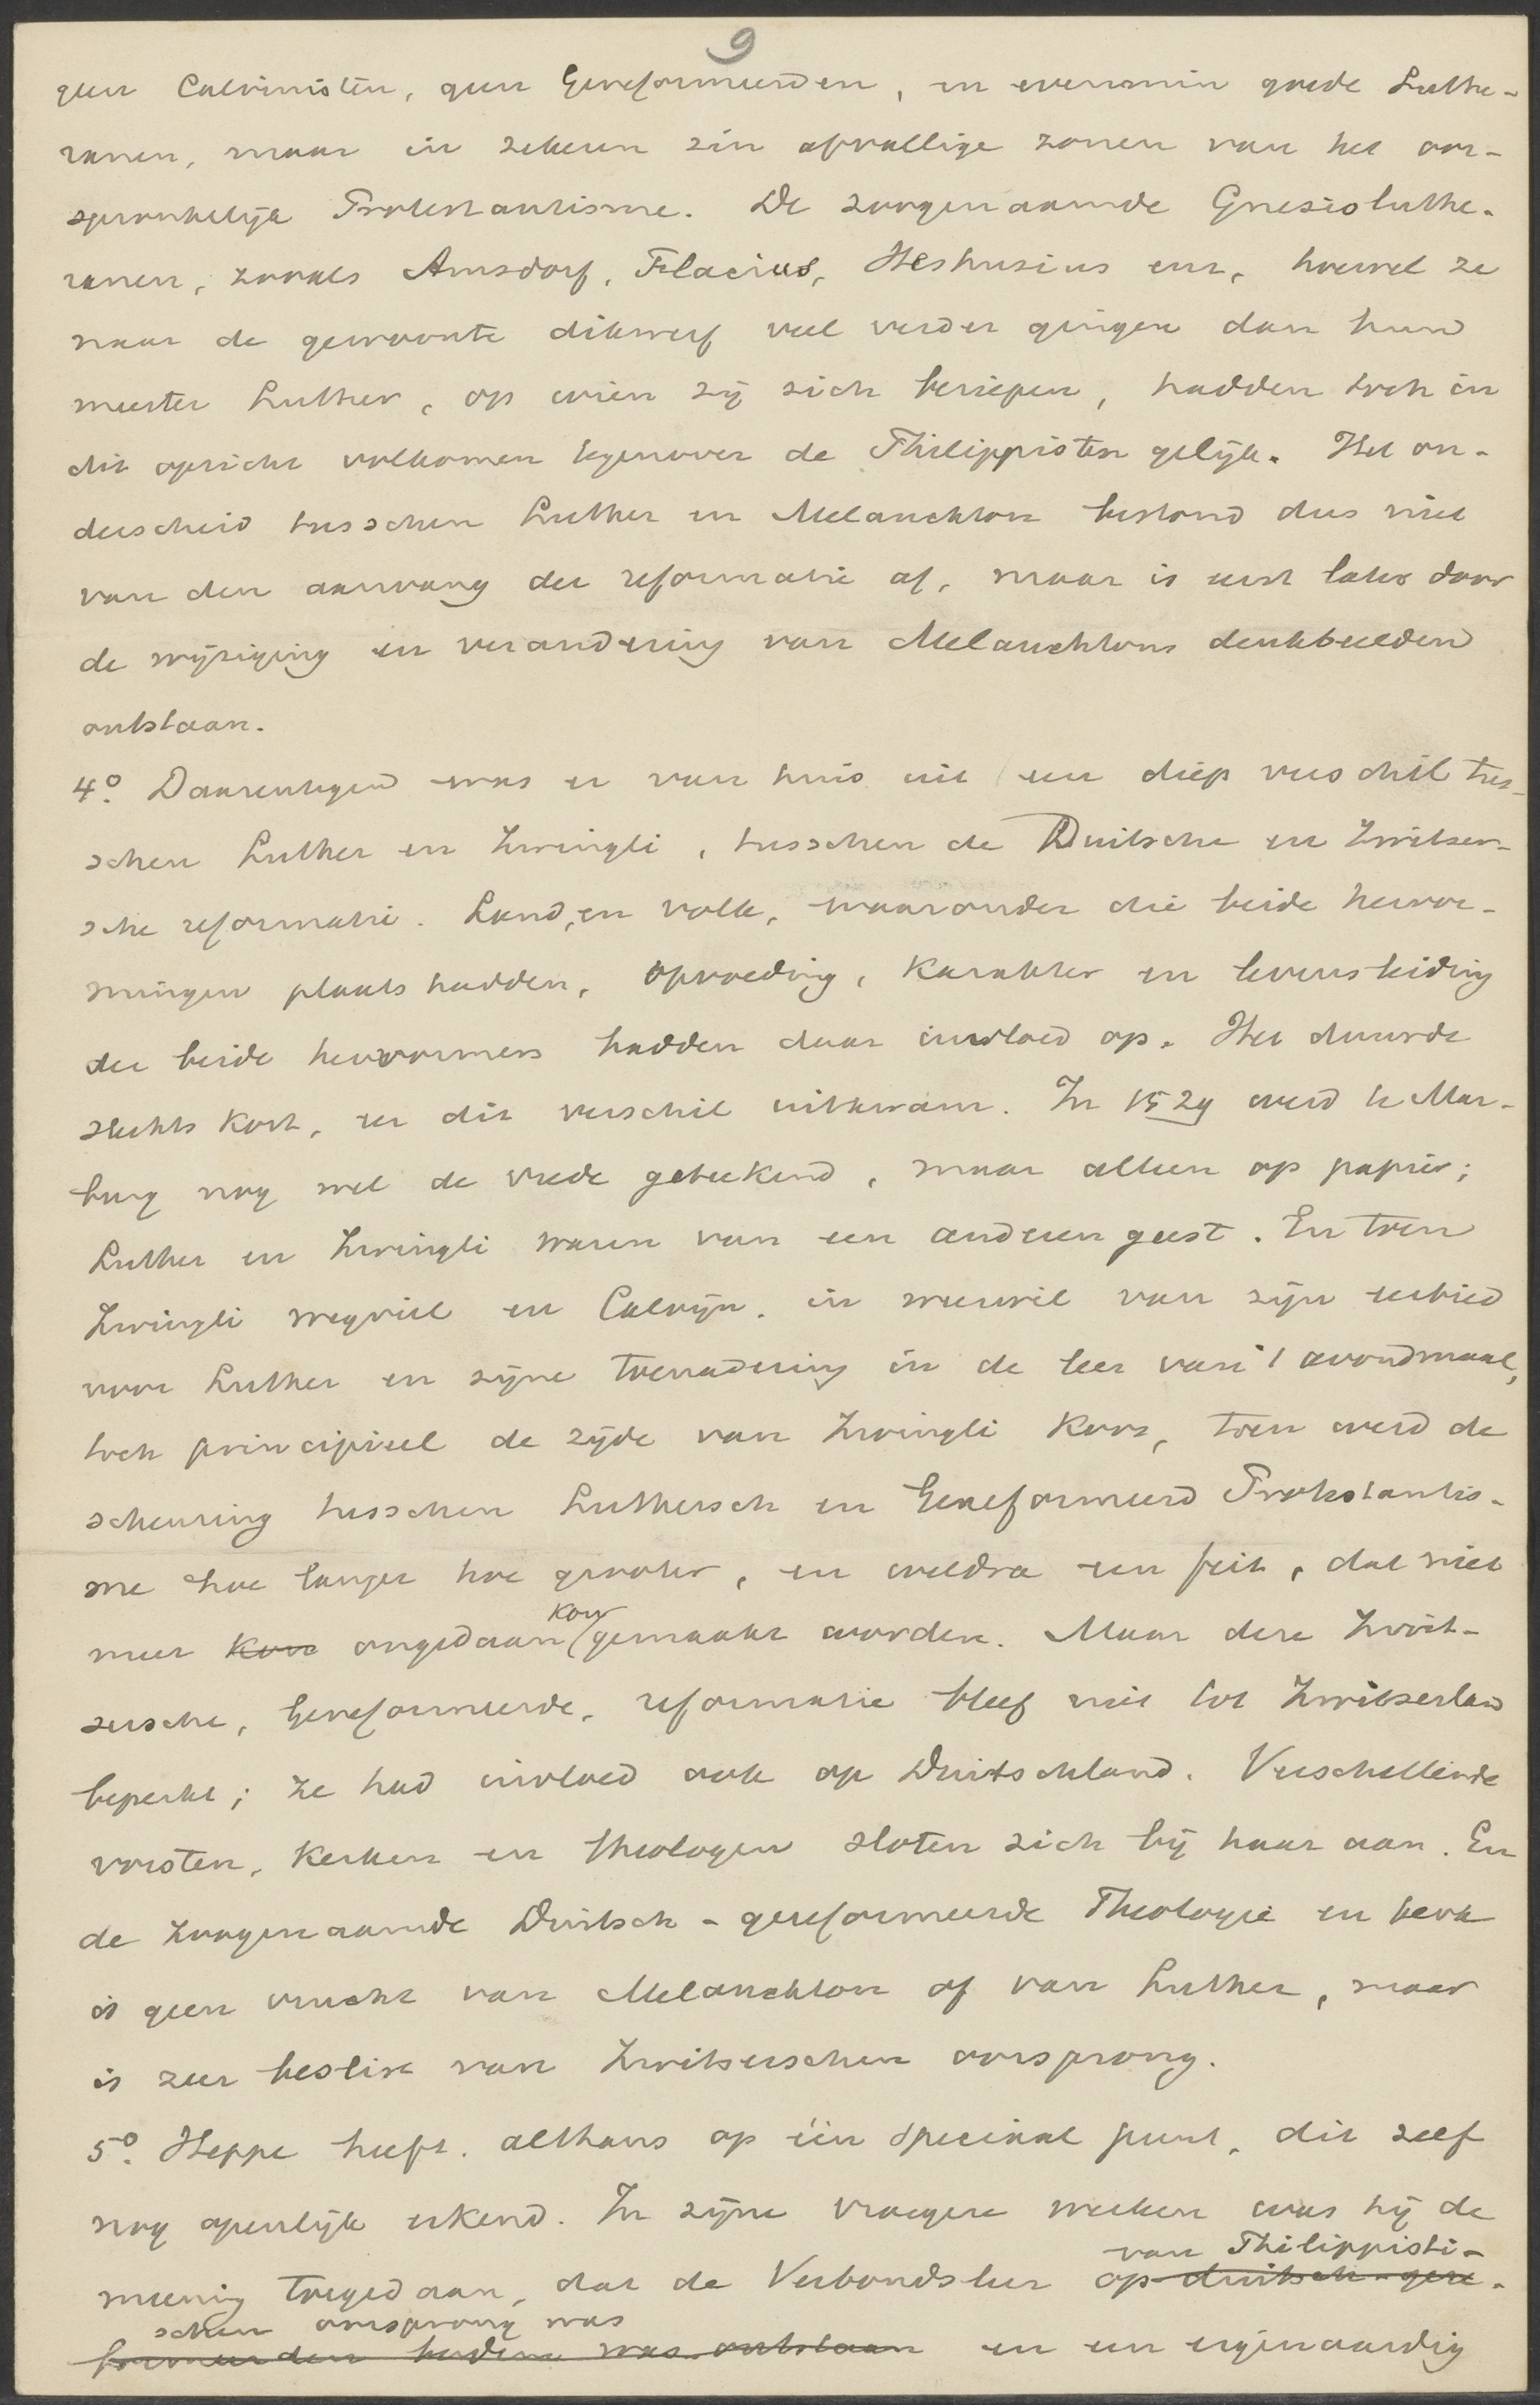 9
geen Calvinisten, geen Gereformeerden, en evenmin goede Luthe-
ranen, maar in zekeren zin afvallige zonen van het oor-
spronkelijk Protestantisme. De zoogenaamde Gnesioluthe-
ranen, zooals Amsdorf, Flacius, Heshusius enz, hoewel ze
naar de gewoonte dikwerf veel verder gingen dan hun
meester Luther, op wien zij zich beriepen, hadden toch in
dit opzicht volkomen tegenover de Philippisten gelijk. Het on-
derscheid tusschen Luther en Melanchton bestond dus niet
van den aanvang der reformatie af, maar is eerst later door
de wijziging en verandering van Melanchtons denkbeelden
ontstaan.
4o. Daarentegen was er van huis uit een diep verschil tus-
schen Luther en Zwingli, tusschen de Duitsche en Zwitser-
sche reformatie. Land, en volk, waaronder die beide hervor-
mingen plaats hadden, opvoeding, karakter en levensleiding
der beide hervormers hadden daar invloed op. Het duurde
slechts kort, eer dit verschil uitkwam. In 1529 werd te Mar-
burg nog wel de vrede geteekend, maar alleen op papier;
Luther en Zwingli waren van een anderen geest. En toen
Zwingli wegviel en Calvijn, in weerwil van zijn eerbied
voor Luther en zijne toenadering in de leer van 't avondmaal,
toch principieel de zijde van Zwingli koos, toen werd de
scheuring tusschen Luthersch en Gereformeerd Protestantis-
me hoe langer hoe grooter, en weldra een feit, dat niet
meer kon ongedaan kon gemaakt worden. Maar deze Zwit-
sersche, Gereformeerde, reformatie bleef niet tot Zwitserland
beperkt; ze had invloed ook op Duitschland. Verschillende
vorsten, kerken en theologen sloten zich bij haar aan. En
de zoogenaamde Duitsch-gereformeerde Theologie en kerk
is geen vrucht van Melanchton of van Luther, maar
is zeer beslist van Zwitserschen oorsprong.
5o. Heppe heeft, althans op één speciaal punt, dit zelf
nog openlijk erkend. In zijne vroegere werken was hij de
van Philippisti-
meening toegedaan, dat de Verbondsleer op duitsch-gere-
schen oorsprong was
formeerden bodem was ontstaan en een eigenaardig